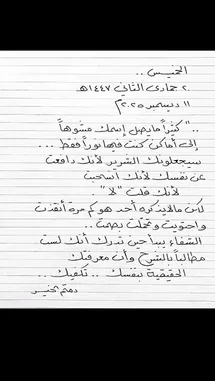 الخميس ..
٢ جمادى الثاني ١٤٤٧هـ
١١ ديسمبر ٢٠٢٥م
.." كثيراً ما يصل إسمك مشوهاً
إلى أماكن كنت فيها نوراً فقط ...
سيجعلونك الشرير لأنك دافعت
عن نفسك لأنك انسحبت
لأنك قلت "لا" .
لكن مالايذكره أحد هو كم مرة أنقذت
واحتويت وتحملت بصمت ..
الشفاء يبدأ حين تدرك أنك لست
مطالباً بالشرح وأن معرفتك
الحقيقية بنفسك .. تكفيك ..
دمتم بخير